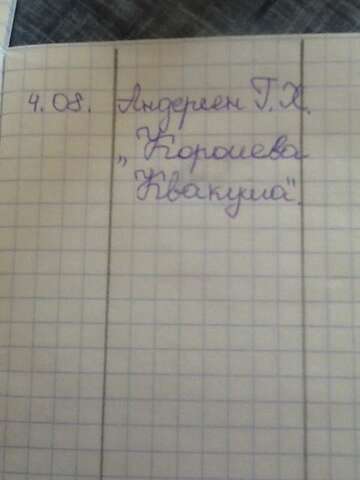 4.08. Андерсен Г.Х.
„Королева
Квакуша".